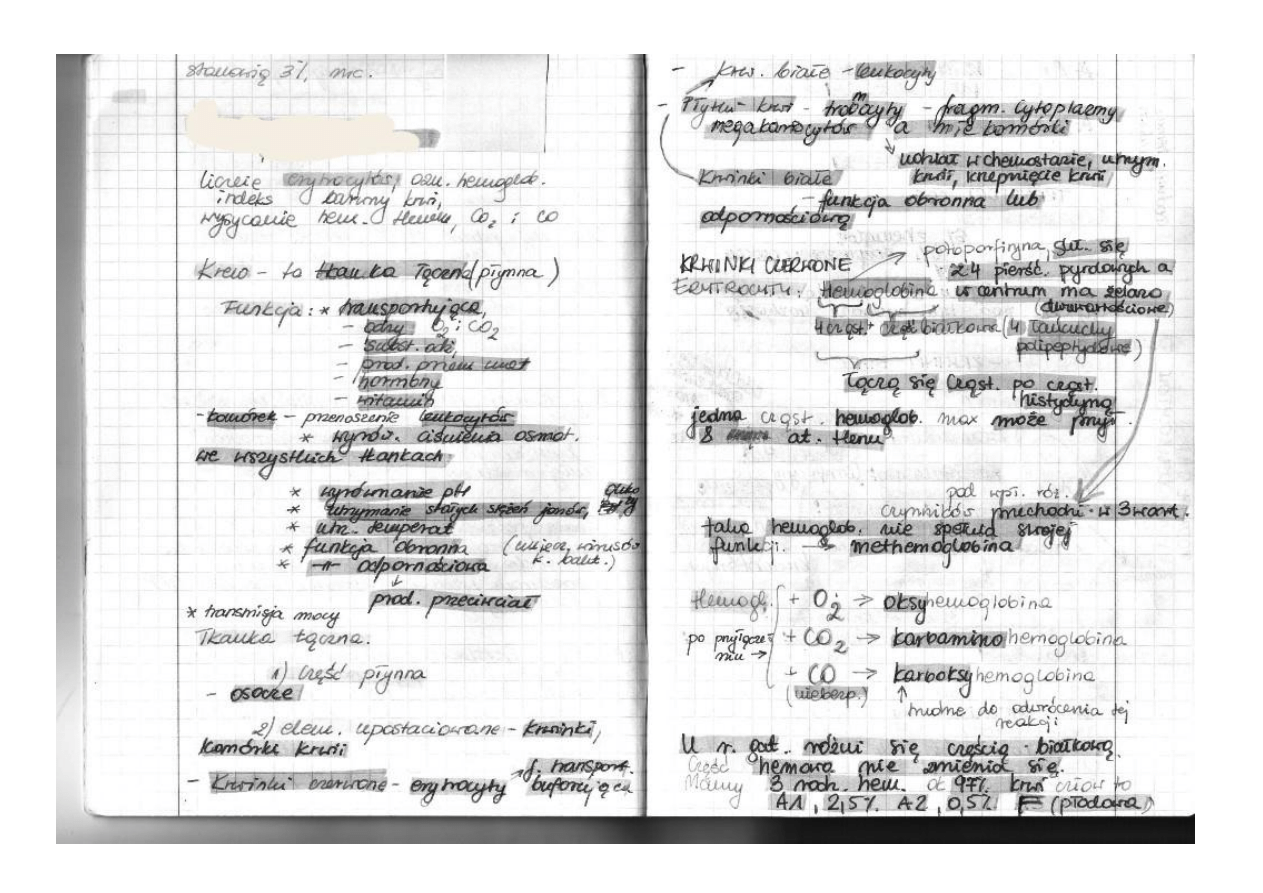 stanowią 3%, mc.
liczeie erytrocytów, ozn. hemoglob.
indeks barwny krwi,
wysycanie hem. tlenem, CO2 i CO
Krew - to tkanka łączna (płynna)
Funkcja: * transportująca,
- odży O2 i CO2
- subst. odż,
- prod. przem. mat
- hormony
- witamin
- komórek - przenoszenie leukocytów
* wyrów. ciśnienia osmot.
we wszystkich tkankach
* wyrównanie pH
* utrzymanie stałych stężeń jonów, gliko
* utrz. temperat
* funkcja obronna (ukjecz, wirusów
* -"- odpornościowa k. bakt.)
↓
prod. przeciwciał
* transmisja mocy
Tkanka łączna.
1) część płynna
- osocze
2) elem. upostaciowane - krwinki,
komórki krwi
- Krwinki czerwone - erytrocyty → f. transport.
buforująca
- krw. białe - leukocyty
- Płytki krwi - trombocyty - fragm. cytoplazmy
megakariocytów a nie komórki
udział w chemostazie, utrzym.
Krwinki białe krwi, krzepnięcie krwi
- funkcja obronna lub
odpornościową
protoporfiryna, skł. się
KRWINKI CZERWONE z 4 pierść. pyrolowych a
ERYTROCYTY: Hemoglobina w centrum ma żelazo
(dwuwartościowe)
4 cząst + część białkowa (4 łańcuchy
polipeptydowe)
łączą się cząst. po cząst.
histydyną
jedna cząst. hemoglob. max może przyj.
8 at. tlenu
pod wpł. róż.
czynników przechodzi w 3 wart.
taka hemoglob. nie spełnia swojej
funkcji. → methemoglobina
Hemogl. + O2 → oksyhemoglobina
po przyłącze + CO2 → karbaminohemoglobina
niu →
+ CO → karboksyhemoglobina
(niebezp.) ↑
trudne do odwrócenia tej
reakcji
U r. gat. różni się częścią białkową.
Część hemowa nie zmienia się.
Mamy 3 rodz. hem. 97% krwi człow to
A1, 2,5% A2, 0,5% F (płodowa)